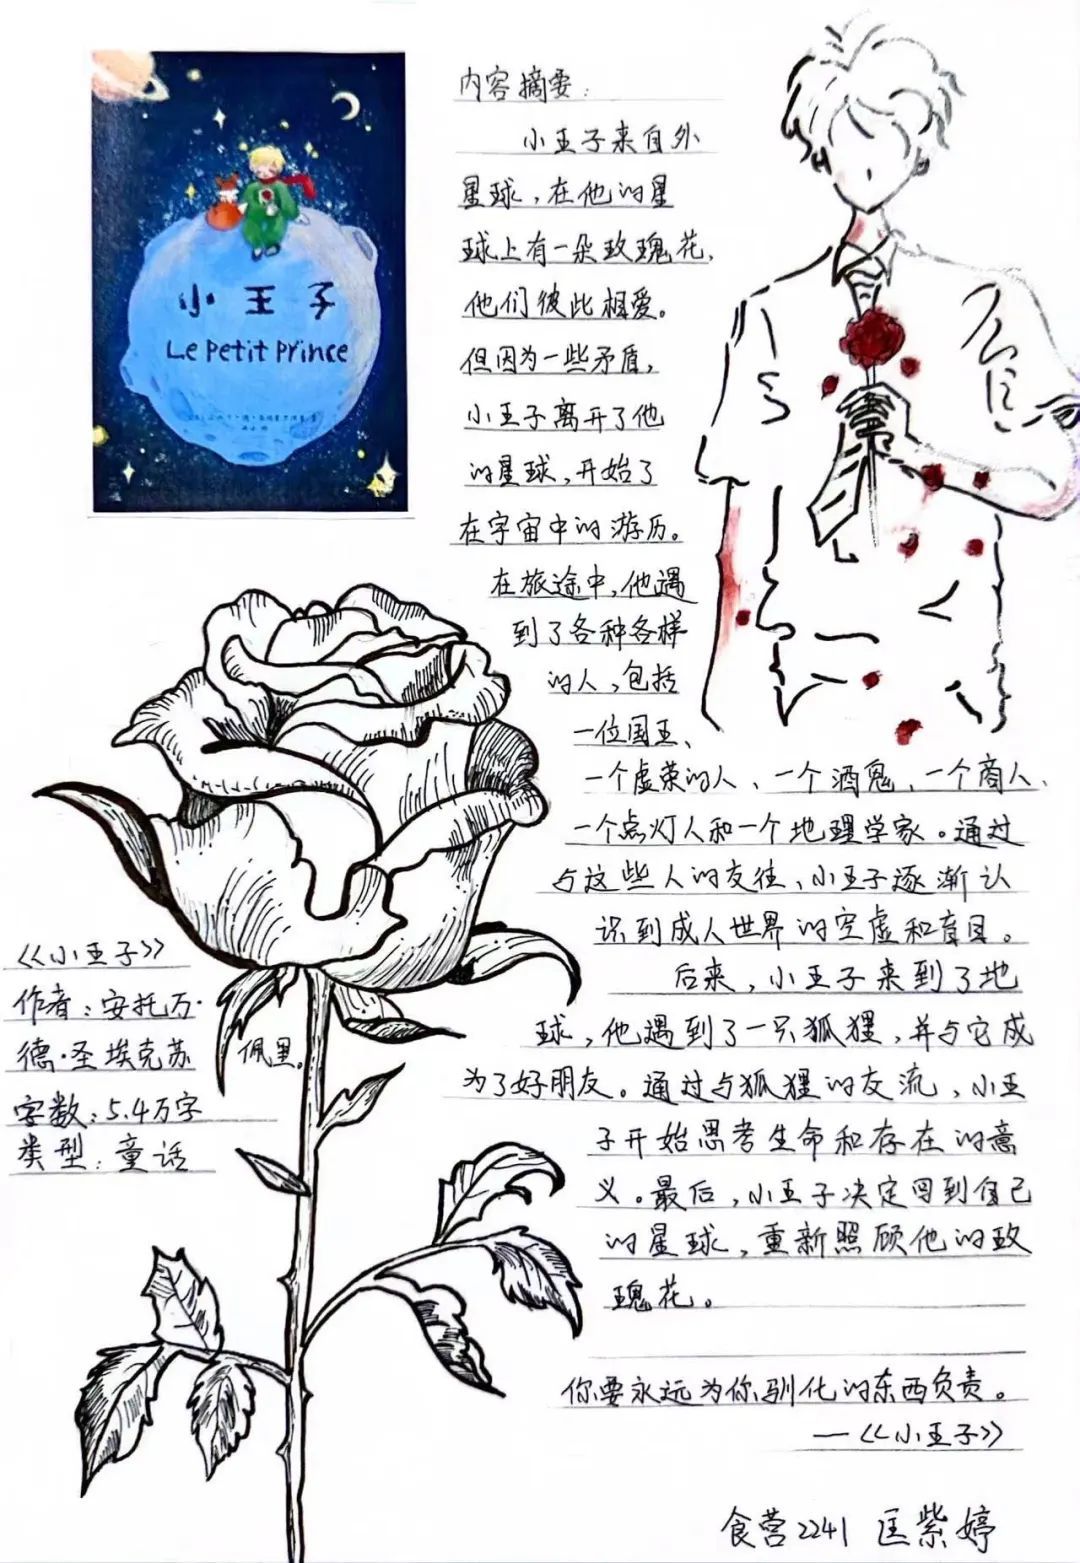 小王子
Le Petit Prince
内容摘要:
小王子来自外
星球,在他的星
球上有一朵玫瑰花,
他们彼此相爱。
但因为一些矛盾,
小王子离开了他
的星球,开始了
在宇宙中的游历。
在旅途中,他遇
到了各种各样
的人,包括
一位国王、
一个虚荣的人、一个酒鬼、一个商人、
一个点灯人和一个地理学家。通过
与这些人的交往,小王子逐渐认
识到成人世界的空虚和盲目。
后来,小王子来到了地
球,他遇到了一只狐狸,并与它成
为了好朋友。通过与狐狸的交流,小王
子开始思考生命和存在的意
义。最后,小王子决定回到自己
的星球,重新照顾他的玫
瑰花。
你要永远为你驯化的东西负责。
—《小王子》
《小王子》
作者:安托万·
德·圣埃克苏佩里。
字数:5.4万字
类型:童话
食营2241 匡紫婷